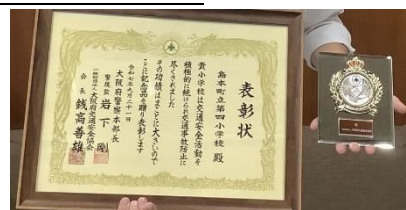 表彰状
島本町立第四小学校 殿
貴小学校は交通安全活動を
積極的に続けられ交通事故防止に
尽くされました
その功績はまことに大きいので
ここに記念品を贈り表彰します
令和七年九月二十一日
大阪府警察本部長
警視監 岩下 剛
一般財団法人 大阪府交通安全協会
会長 錢高善雄